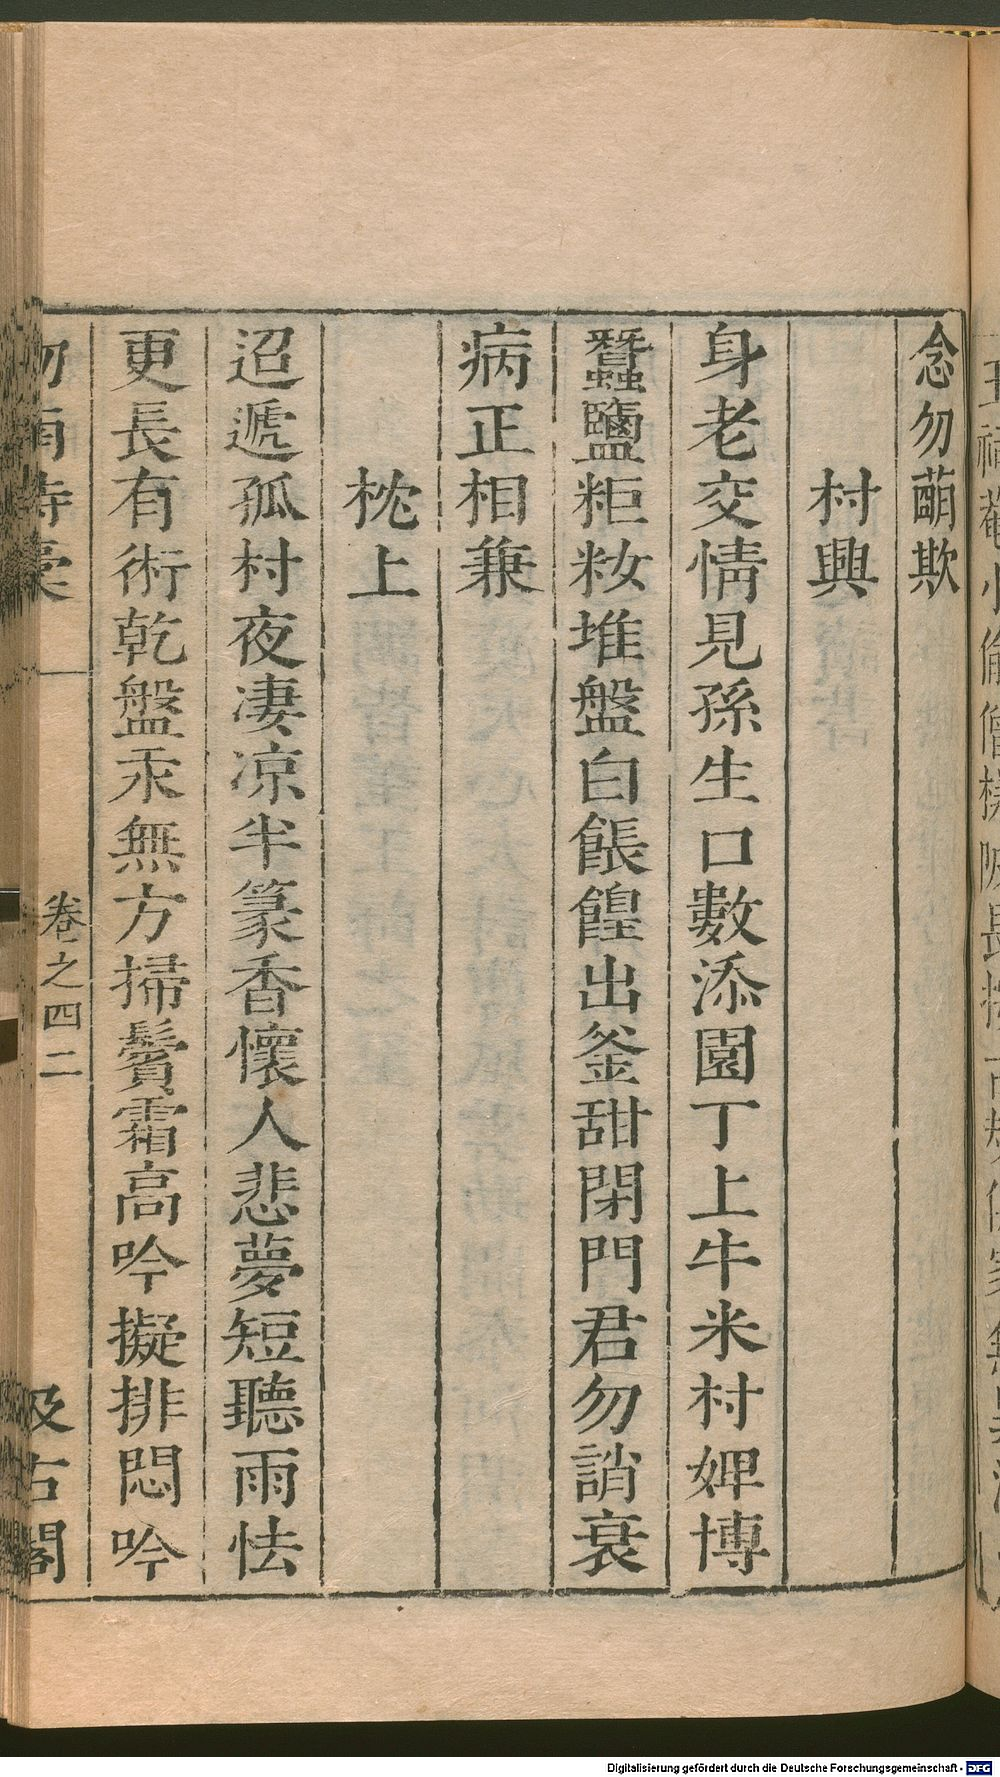 念勿萠欺
村興
身老交情見孫生口數添園丁上牛米村婢博
蠶鹽粔籹堆盤白餦餭出釜甜閉門君勿誚衰
病正相兼
枕上
迢遞孤村夜凄凉半篆香懷人悲夢短聽雨怯
更長有術乾盤汞無方掃鬢霜高吟擬排悶吟
卷之四 二
汲古閣
Digitalisierung gefördert durch die Deutsche Forschungsgemeinschaft - DFG